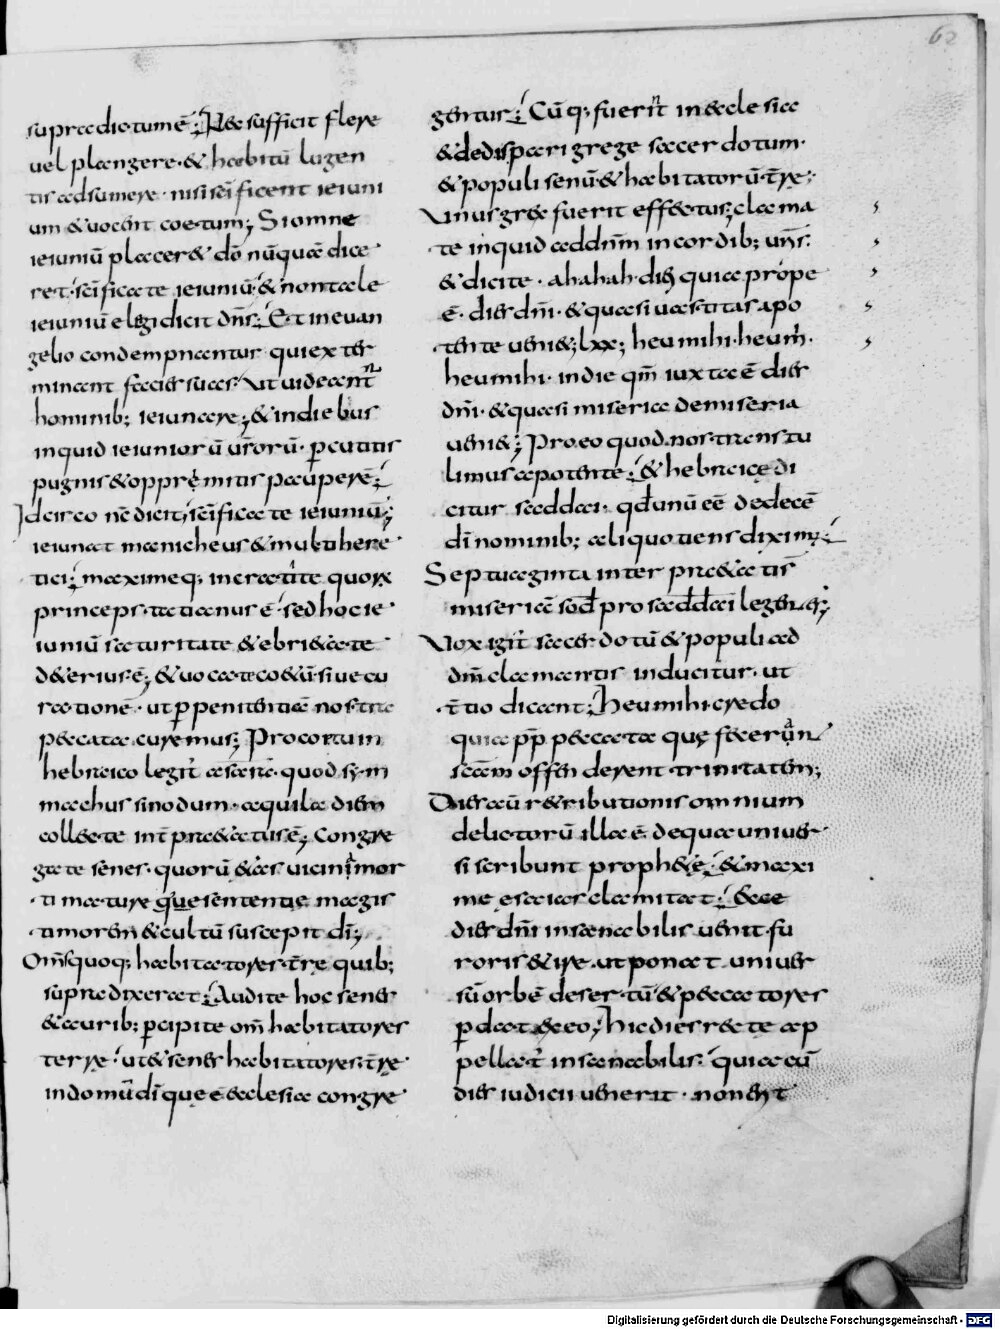 62
supradictum ē; Nec sufficit flere
vel plangere· & habitū lugen
tis adsumere· nisi scīficent ieiuni
um & vocent coetum; Si omne
ieiuniū placer& dō nūquā dice
ret· scīficate ieiuniū; & non tale
ieiuniū elegi dicit dn̄s; Et in evan
gelio condempnantur qui exter
minant facies suas· ut videant̄
hominib; ieiunare; & in diebus
inquid ieiuniorū ur̄orū· ꝑcutitis
pugnis & opprimitis pauperē;
Idcirco nc̄ dicit; scīficate ieiuniū;
ieiunat manicheus & multi here
tici; maximeq; incratite quorū
princeps· tatianus ē· sed hoc ie
iuniū saturitate & ebrietate
deterius ē; & vocate coetū· sive cu
rationē· ut ꝑ penitentiā nostra
peccata curemus; Pro coetu in
hebraico legit̄ asara· quod sym
machus sinodum· aquila diem
collecte int̄pretatus ē; Congre
gate senes· quorū &as vicina mor
ti mature que sententie magis
timorem & cultū suscepit dī;
Om̄squoq; habitatores tr̄e quib;
supra dixerat; Audite hoc senes
& aurib; ꝑcipite om̄ habitatores
terre; ut & senes habitatores tr̄e
in domū dī que ē ecclesia congre
gentur; Cūq; fuerit̄ in ecclesia
& de dispari grege sacerdotum·
& populi senū & habitatorū tr̄e;
Unus grex fuerit effectus; clama
te inquid ad dn̄m in cordib; ur̄is:
& dicite· ahahah diei quia prope
ē· dies dn̄i· & quasi vastitas a po
tente veni&; lxx; heu mihi· heu m̄·
heu mihi· in die qm̄ iuxta ē dies
dn̄i· & quasi miseria de miseria
veni&; Pro eo quod nos transtu
limus a potente; & hebraice di
citur saddai· qd̄ unū ēē de decē
dī nominib; aliquotiens diximus;
Septuaginta inter pr&atis
miseriā sed pro saddai legentes;
Vox igit̄ sacerdotū & populi ad
dm̄ clamantis inducitur· ut
t̄tio dicant; Heu mihi· credo
quia pp̄ peccata que fecerun̄
scām offenderent trinitatem;
Dies aū r&ributionis omnium
delictorū illa ē de qua univer
si scribunt prophete; & maxi
me esaias clamitat; Ecce
dies dn̄i insanabilis venit fu
roris & ire· ut ponat univer
sū orbē desertū & peccatores
ꝑdat ex eo; Hic dies recte ap
pellat̄ insanabilis· quia cū
dies iudicii venerit· non ent
Digitalisierung gefördert durch die Deutsche Forschungsgemeinschaft - DFG